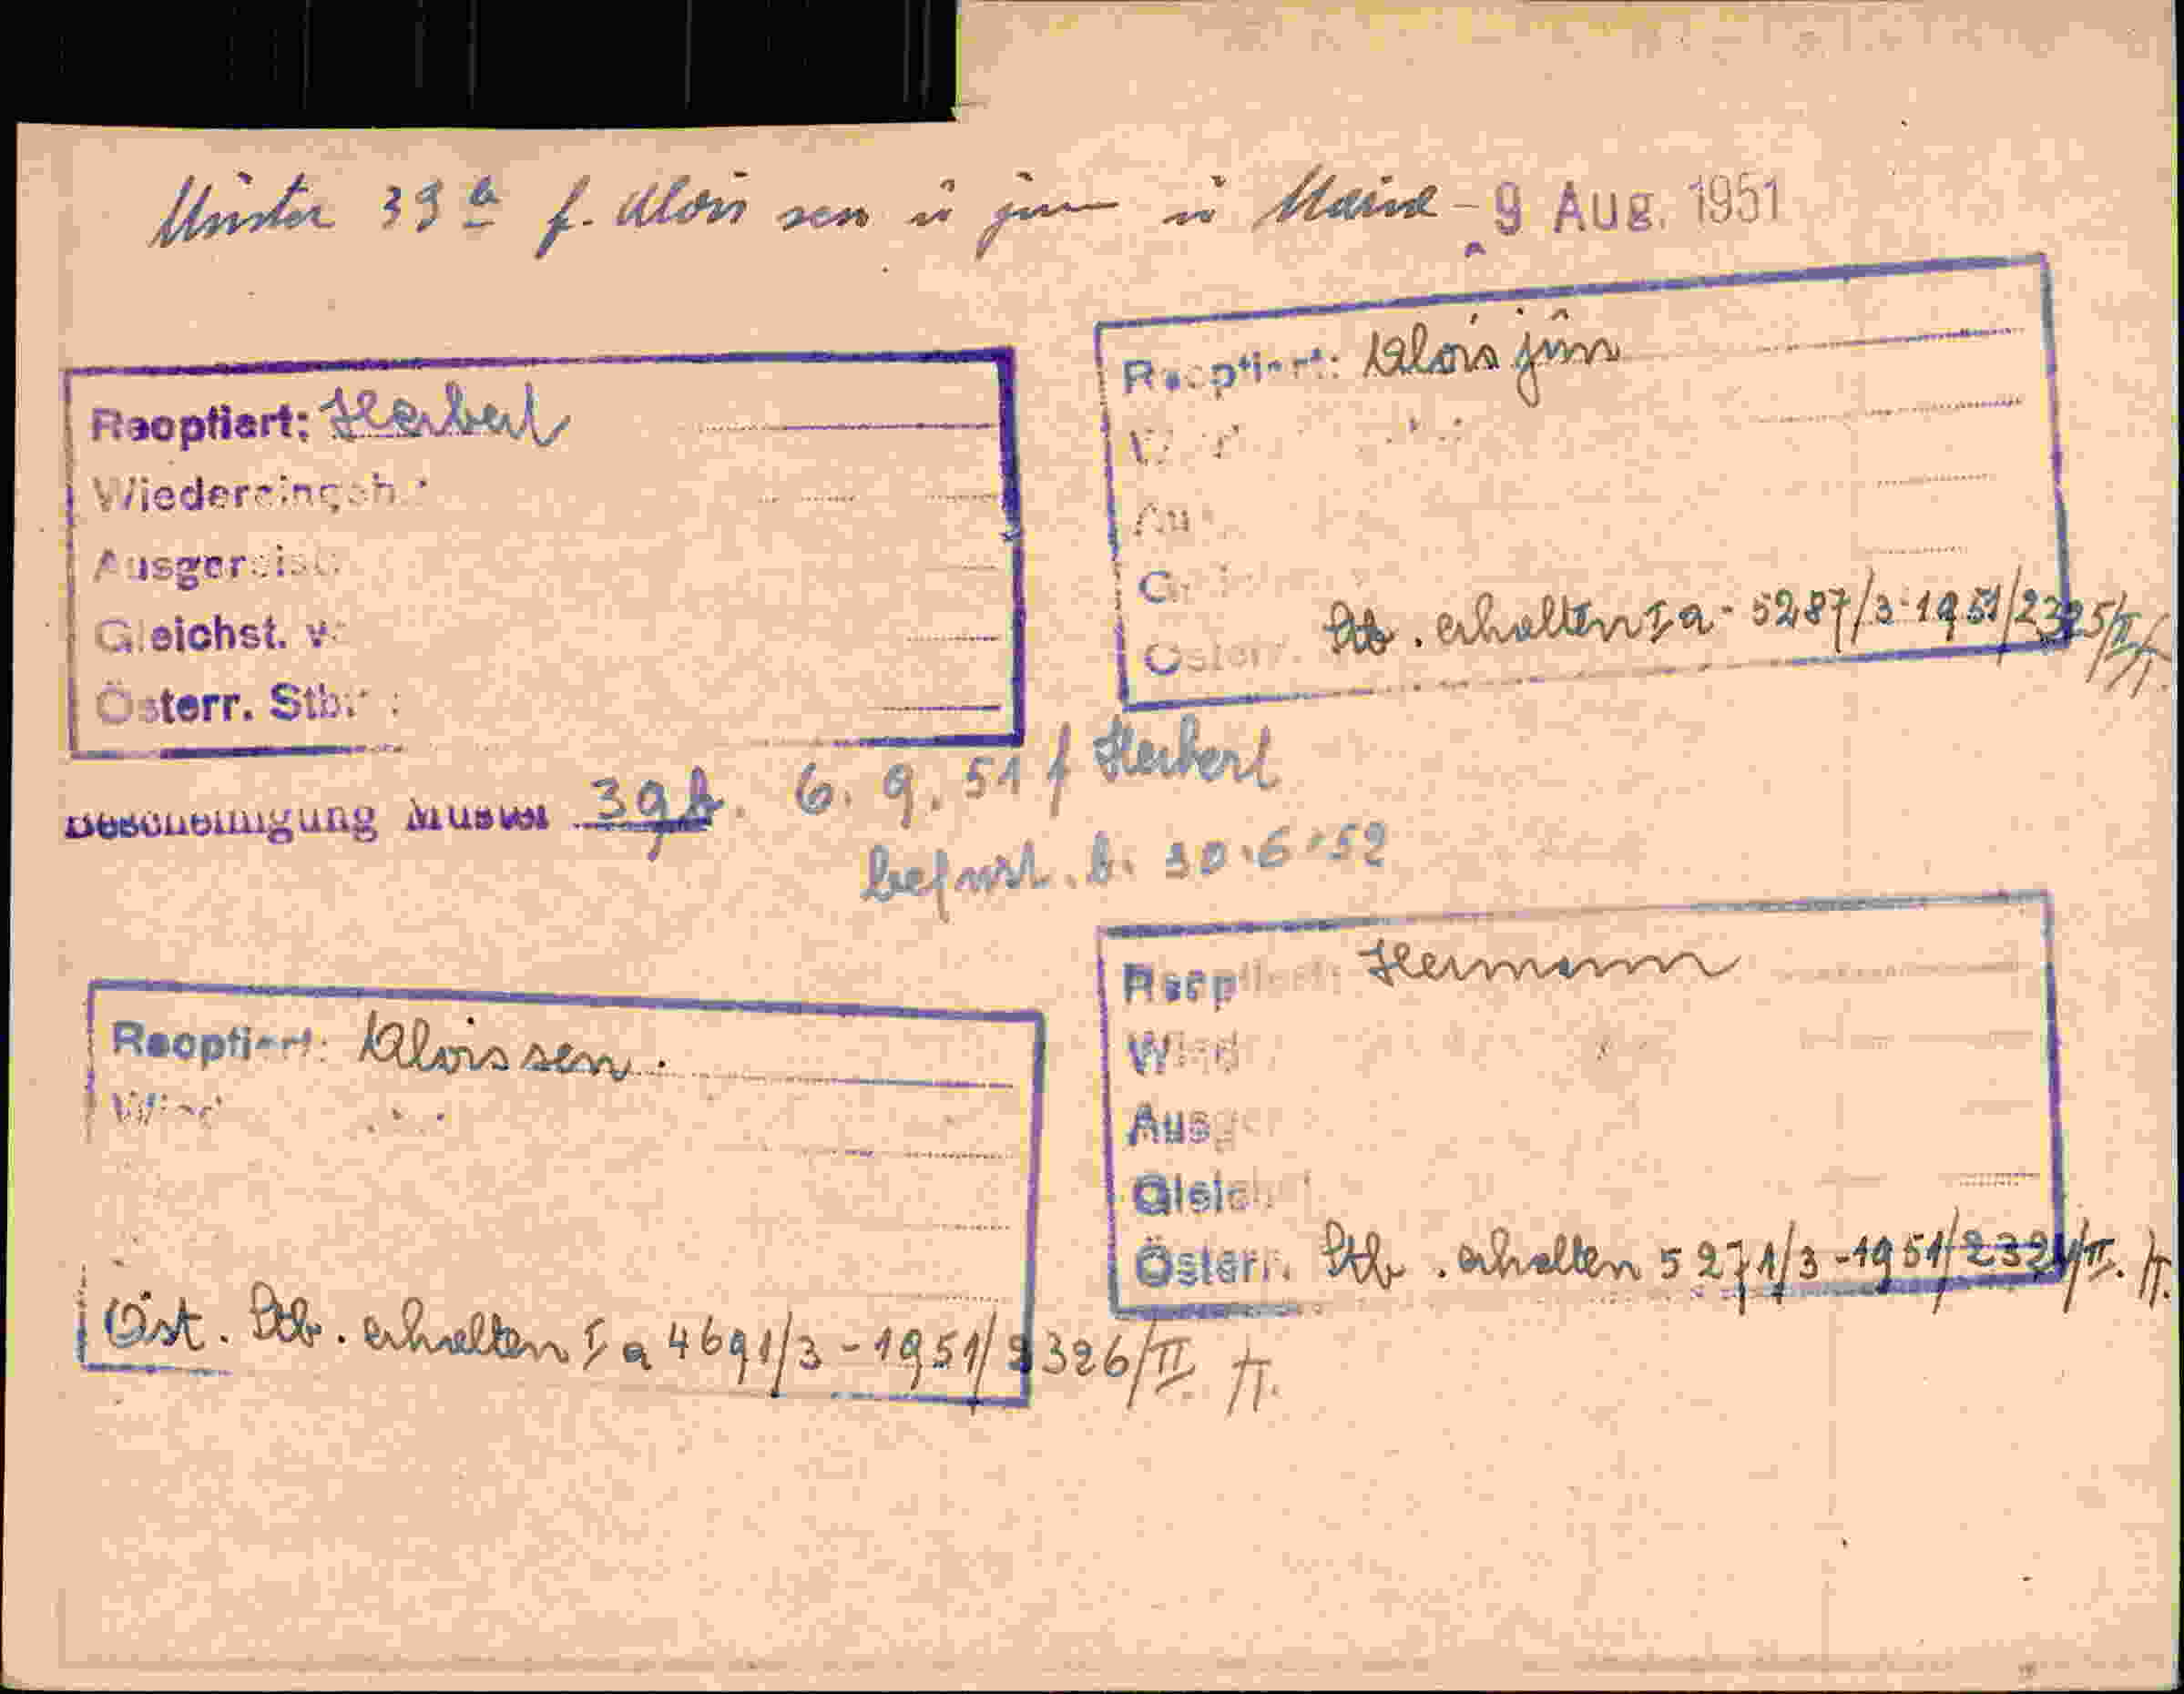 Muster 39 a f. Alois sen u jun u Maria - 9 Aug. 1951
Reoptiert: Herbert
Wiedereingeb.:
Ausgereist:
Gleichst. v:
Österr. Stb.:
Reoptiert: Alois jun
Österr. Stb. erhalten I a - 5287/3-1951/2325/II
Bescheinigung Muster 39 b. 6. 9. 51 f Herbert
befrist. b. 30.6.52
Reoptiert: Alois sen.
Wied
Öst. Stb. erhalten I a 4691/3-1951/2326/II
Reoptiert: Hermann
Wied
Ausger
Gleich
Österr. Stb. erhalten 5271/3-1951/2324/II.